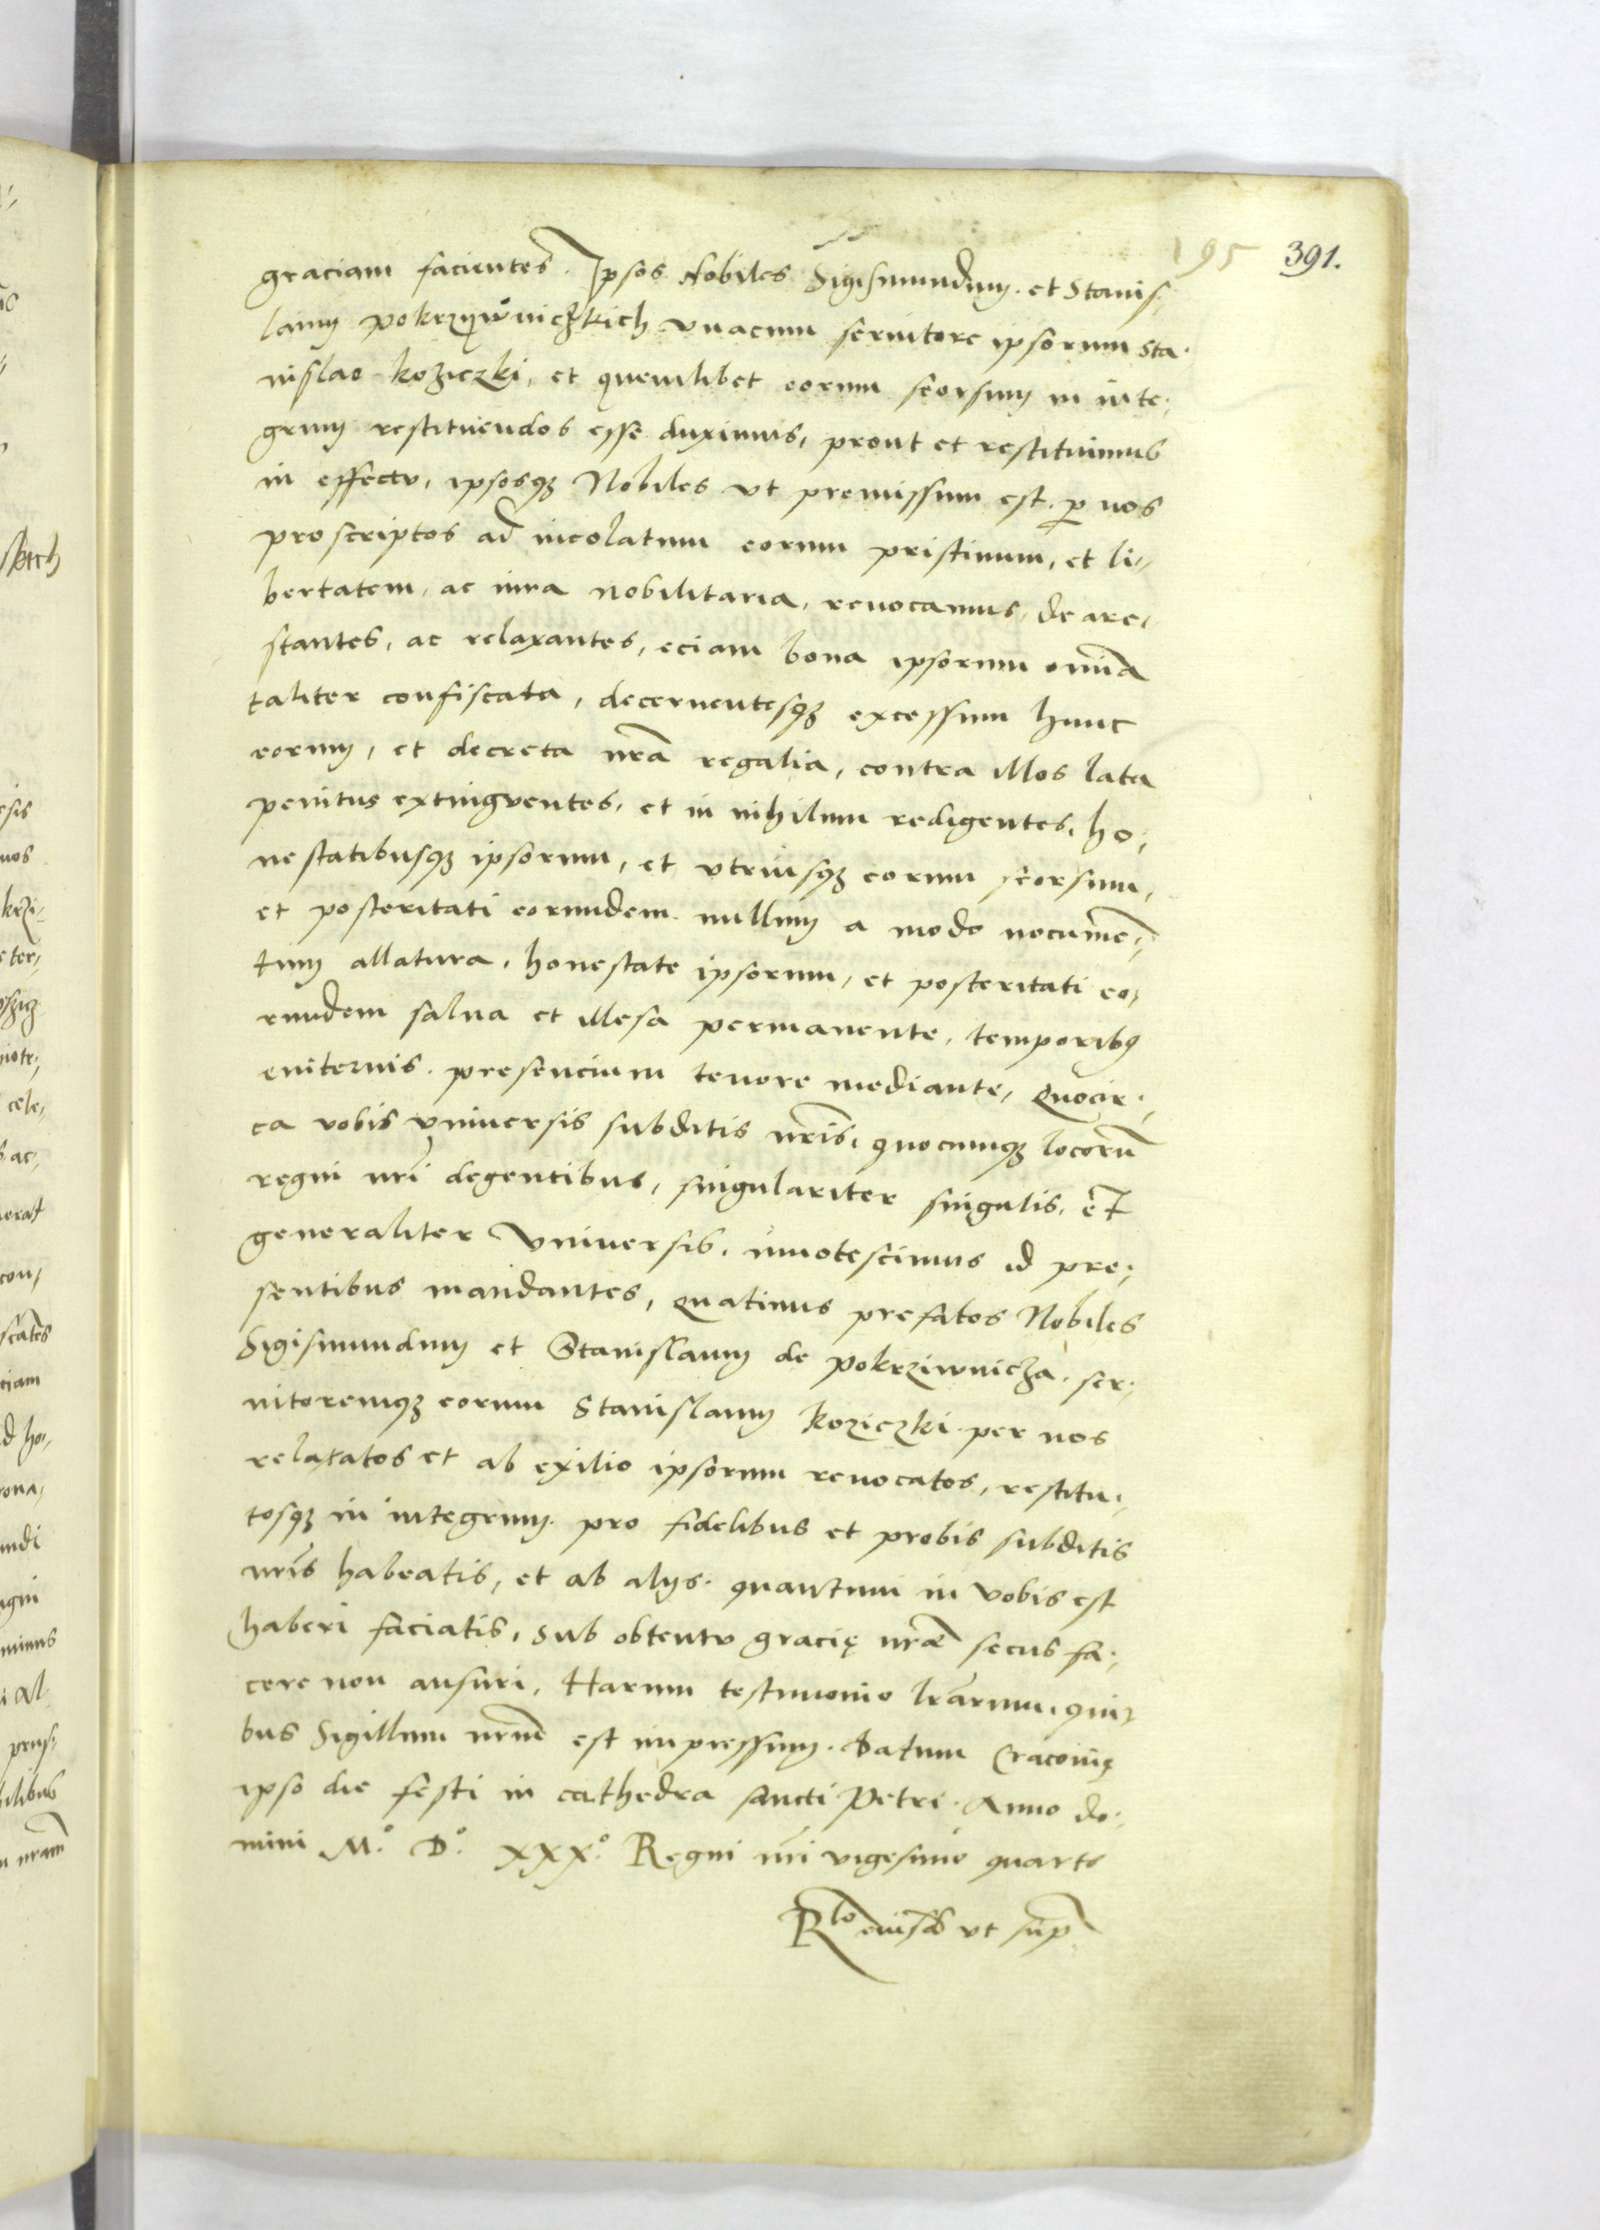 195 391.
graciam facientes. Ipsos Nobiles Sigismundum. et Stanis-
laum pokrzywniczkich vnacum seruitore ipsorum Sta-
nislao koziczki, et quemlibet eorum seorsum in inte-
grum restituendos esse duximus, prout et restituimus
in effectu, ipsosqȝ Nobiles vt premissum est. p̱ nos
proscriptos ad incolatum eorum pristinum, et li-
bertatem, ac iura nobilitaria, reuocamus, de are-
stantes, ac relaxantes, eciam bona ipsorum om̃ia
taliter confiscata, decernentesqȝ excessum hunc
eorum, et decreta nr̃a regalia, contra illos lata
penitus extingventes, et in nihilum redigentes, ho-
nestatibusqȝ ipsorum, et vtriusqȝ eorum seorsum,
et posteritati eorundem nullum a modo nocumẽ-
tum allatura, honestate ipsorum, et posteritati eo-
rundem salua et illesa permanente, temporibꝰ
euiternis. presencium tenore mediante, Quocir-
ca vobis vniuersis subditis nr̃is, quocumqȝ locorũ
regni nr̃i degentibus, singulariter singulis, et
generaliter Vniuersis, innotescimus id pre-
sentibus mandantes, quatinus prefatos Nobiles
Sigismundum et Stanislaum de pokrziwnicza, ser-
uitoremqȝ eorum Stanislaum koziczki per nos
relaxatos et ab exilio ipsorum reuocatos, restitu-
tosqȝ in integrum. pro fidelibus et probis subditis
nr̃is habeatis, et ab alijs. quantum in vobis est
haberi faciatis, sub obtentu gracię nr̃ae secus fa-
cere non ausuri, Harum testimonio lr̃arum, qui-
bus Sigillum nr̃um est impressum. Datum Cracouię
ipso die festi in cathedra sancti Petri. Anno do-
mini M.º D.º XXX.º Regni nr̃i vigesimo quarto
R^lo eiusd̃ vt sup̃